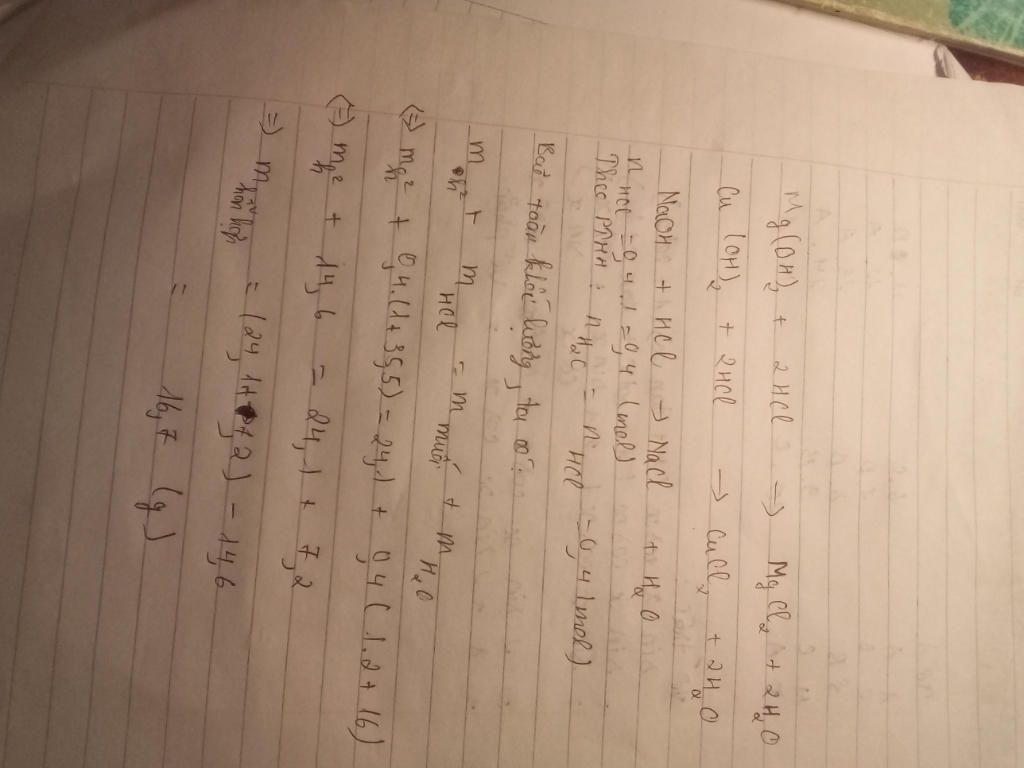 Mg(OH)₂ + 2HCl → MgCl₂ + 2H₂O
Cu(OH)₂ + 2HCl → CuCl₂ + 2H₂O
NaOH + HCl → NaCl + H₂O
n HCl = 0,4.1 = 0,4 (mol)
Theo PTHH: n H₂O = n HCl = 0,4 (mol)
Bảo toàn khối lượng, ta có:
m hh + m HCl = m muối + m H₂O
(=) m hh + 0,4(1+35,5) = 24,1 + 0,4(1.2+16)
(=) m hh + 14,6 = 24,1 + 7,2
=) m hỗn hợp = (24,1+7,2) - 14,6
= 16,7 (g)